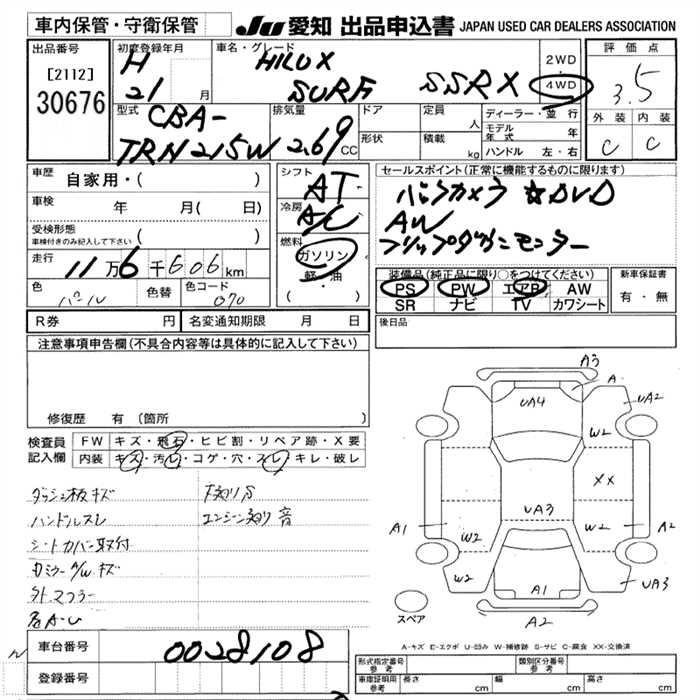 車内保管・守衛保管
JU 愛知 出品申込書 JAPAN USED CAR DEALERS ASSOCIATION
出品番号
[2112]
30676
初度登録年月
H
21 月
車名・グレード
HILUX
SURF SSRX
2WD
4WD
評価点
3.5
外装 内装
C C
型式
CBA-
TRN215W
排気量
2.69
CC
ドア
形状
定員
人
積載
kg
ディーラー・並行
モデル年式 年
ハンドル 左・右
車歴 自家用・( )
車検 年 月( 日)
受検形態
車検付きのみ記入して下さい ( )
走行 11万6千606km
色 パール 色替 色コード 070
シフト
AT
冷房
A/C
燃料
ガソリン
軽・油
( )
セールスポイント(正常に機能するものに限ります)
バックカメラ ☆DVD
AW
フリップダウンモニター
装備品(純正品に限り○をつけてください)
PS PW エアB AW
SR ナビ TV カワシート
新車保証書
有・無
R券 円 名変通知期限 月 日
後日品
注意事項申告欄(不具合内容等は具体的に記入して下さい)
修復歴 有 〔箇所 〕
検査員
記入欄
FW キズ・飛石・ヒビ割・リペア跡・X要
内装 キズ・汚レ・コゲ・穴・スレ・キレ・破レ
ダッシュ板キズ
ハンドルスレ エンジン廻り音
シートカバー取付
ミラー A/W キズ
外マフラー
A3
A
UA4
UA2
W2
XX
UA3
A1
W2
W2
A2
W2
A1
UA3
A2
スペア
A-キズ E-エクボ U-凹み W-補修跡 S-サビ C-腐食 XX-交換済
車台番号 0028108
登録番号
形式指定番号
参考
類別区分番号
参考
車庫証明用
参考
長さ cm 幅 cm 高さ cm